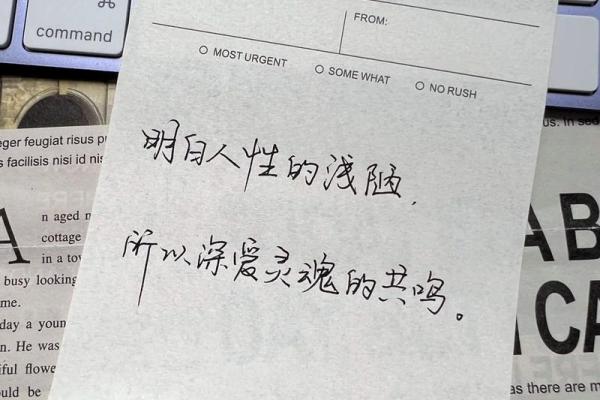 ⌘
command
FROM:
MOST URGENT
SOME WHAT
NO RUSH
明白人性的浅陋,
所以深爱灵魂的共鸣。
eger feugiat risus p
s facilisis nisi id nis
A
n aged
cottage
in a tow
busy looking
me.
day a youn
n. He was
iful flowe
ould be
us. In sed
AB
CA
as there are m